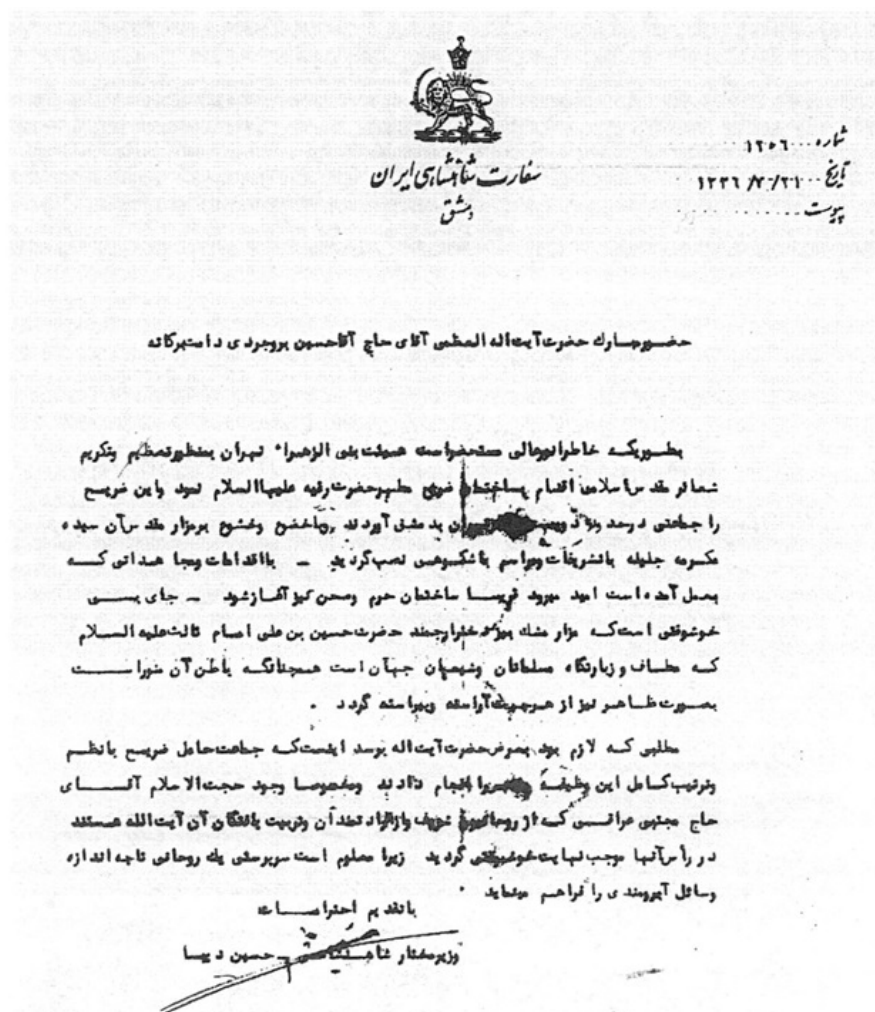 شماره ۱۲۵۶
تاریخ ۱۳۳۶/۳/۲۱
پیوست
سفارت شاهنشاهی ایران
دمشق
حضور مبارك حضرت آیت اله العظمی آقای حاج آقا حسین بروجردی دامت برکاته
بطوریکه خاطر انور عالی مستحضر است هیئت بنی الزهرا تهران بمنظور تعظیم وتکریم
شعائر مقدس اسلامی اقدام بساختن ضریح مطهر حضرت رقیه علیها السلام نمود واین ضریح
را جماعتی درحدود بدمشق آوردند وباخضوع وخشوع برمزار مقدس آن سیده
مکرمه جلیله باتشریفات ومراسم باشکوهی نصب گردید – بااقدامات ومجاهداتی که
بعمل آمده است امید میرود قریبا ساختمان حرم وصحن نیز آغاز شود – جای بسی
خوشوقتی است که مزار دختر ارجمند حضرت حسین بن علی امام ثالث علیه السلام
که مطاف وزیارتگاه مسلمانان وشیعیان جهان است همچنانکه باطن آن منور است
بصورت ظاهر نیز از هر جهت آراسته وپیراسته گردد .
مطلبی که لازم بود بعرض حضرت آیت اله برسد اینست که جماعت حامل ضریح بانظم
وترتیب کامل این وظیفه را انجام دادند ومخصوصا وجود حجت الاسلام آقای
حاج مجتبی عراقی که از روحانیون شریف وازافراد تمدن وتربیت یافتگان آن آیت الله هستند
در رأس آنها موجب نهایت خوشوقتی گردید زیرا معلوم است سرپرستی یك روحانی تاچه اندازه
وسائل آبرومندی را فراهم مینماید
باتقدیم احترامات
وزیر مختار شاهنشاهی – حسین دیبا